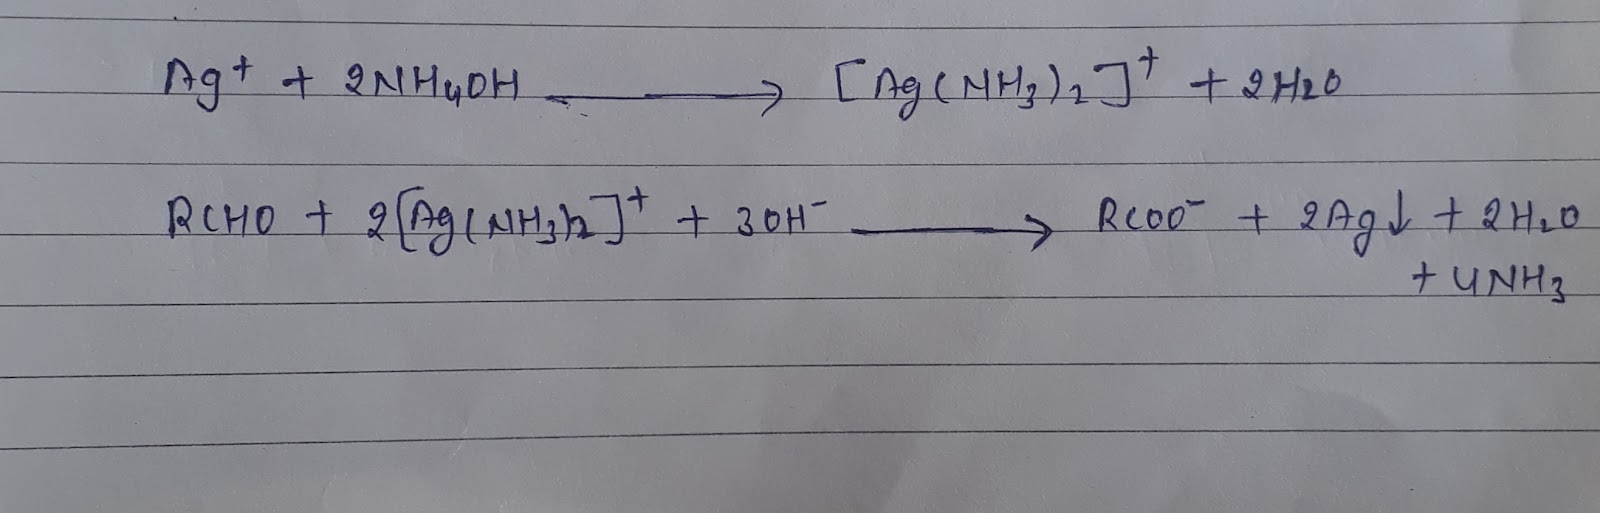 Ag⁺ + 2NH₄OH ⟶ [Ag(NH₃)₂]⁺ + 2H₂O
RCHO + 2[Ag(NH₃)₂]⁺ + 3OH⁻ ⟶ RCOO⁻ + 2Ag↓ + 2H₂O
+ 4NH₃